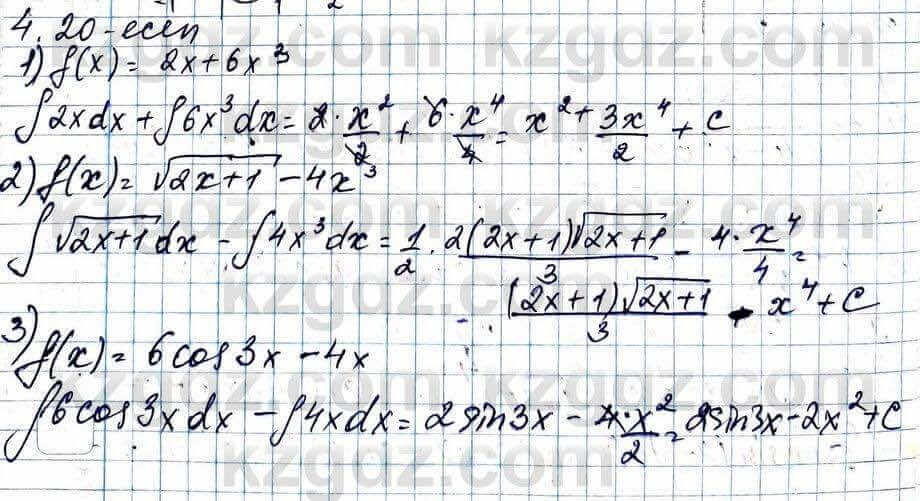 4.20-есеп
1) f(x) = 2x + 6x³
∫2xdx + ∫6x³dx = 2·x²/2 + 6·x⁴/4 = x² + 3x⁴/2 + C
2) f(x) = √(2x+1) - 4x³
∫√(2x+1)dx - ∫4x³dx = 1/2 · 2(2x+1)√(2x+1)/3 - 4·x⁴/4 =
= (2x+1)√(2x+1)/3 - x⁴ + C
3) f(x) = 6cos3x - 4x
∫6cos3xdx - ∫4xdx = 2sin3x - 4·x²/2 = 2sin3x - 2x² + C
kzgdz.com